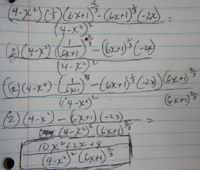 (4-x²)(1/3)(6x+1)^(-2/3)(6) - (6x+1)^(1/3)(-2x)
(4-x²)²
(2)(4-x²)(1/(6x+1)^(2/3)) - (6x+1)^(1/3)(-2x)
(4-x²)²
(2)(4-x²)(1/(6x+1)^(2/3)) - (6x+1)^(1/3)(-2x) (6x+1)^(2/3)
(4-x²)² (6x+1)^(2/3)
(2)(4-x²) - (6x+1)(-2x) =
(4-x²)²(6x+1)^(2/3)
10x²+2x+8
(4-x²)²(6x+1)^(2/3)